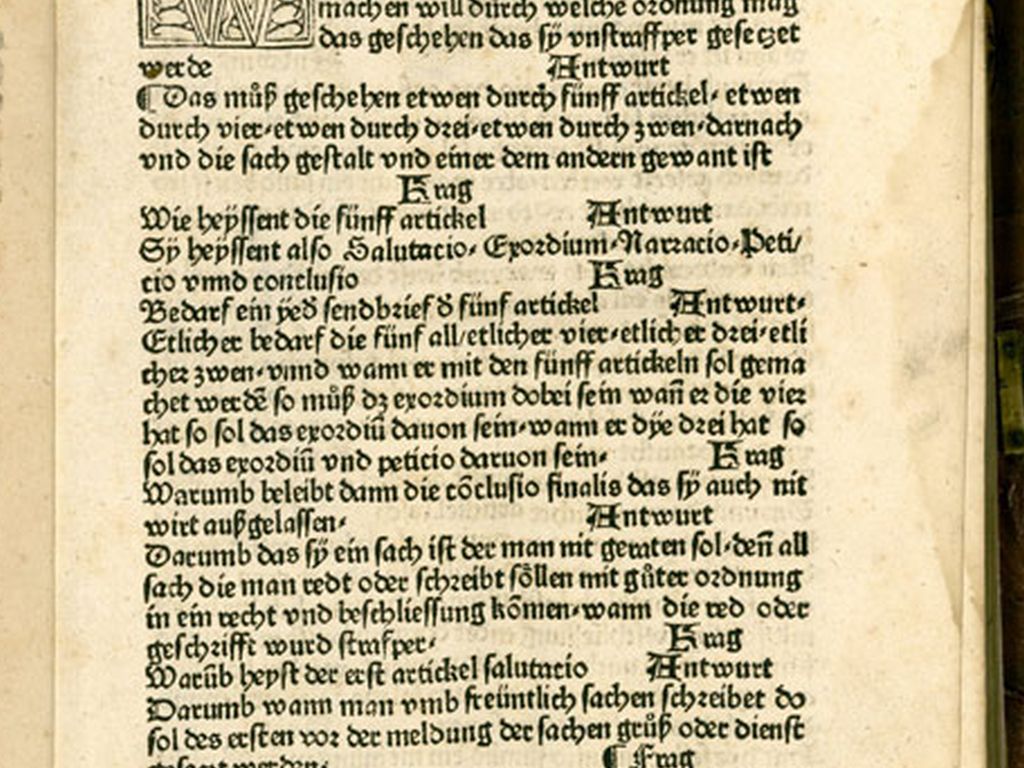 machen will durch welche ordnung mag
das geschehen das sÿ vnstraffper geseczet
werde Antwurt
¶ Das můß geschehen etwen durch fünff artickel· etwen
durch vier·etwen durch drei·etwen durch zwen·darnach
vnd die sach gestalt vnd einer dem andern gewant ist
Frag
Wie heÿssent die fünff artickel Antwurt
Sÿ heÿssent also Salutacio· Exordium·Narracio·Peti/
cio vnnd conclusio Frag
Bedarf ein ÿeđ sendbrief đ fünf artickel Antwurt·
Etlicher bedarf die fünf all/etlicher vier·etlicher drei·etli
cher zwen·vnnd wann er mit den fünff artickeln sol gema
chet werdē so můß dz exordium dobei sein wañ er die vier
hat so sol das exordiū dauon sein·wann er dÿe drei hat so
sol das exordiū vnd peticio daruon sein· Frag
Warumb beleibt dann die cōclusio finalis das sÿ auch nit
wirt außgelassen· Antwurt
Darumb das sÿ ein sach ist der man nit geraten sol·deñ all
sach die man redt oder schreibt söllen mit gůter ordnung
in ein recht vnd beschliessung kōmen·wann die red oder
geschrifft wurd strafper· Frag
Warūb heyst der erst artickel salutacio Antwurt
Darumb wann man vmb freüntlich sachen schreibet do
sol des ersten vor der meldung der sachen grůß oder dienst
gesagt werden· ¶ Frag